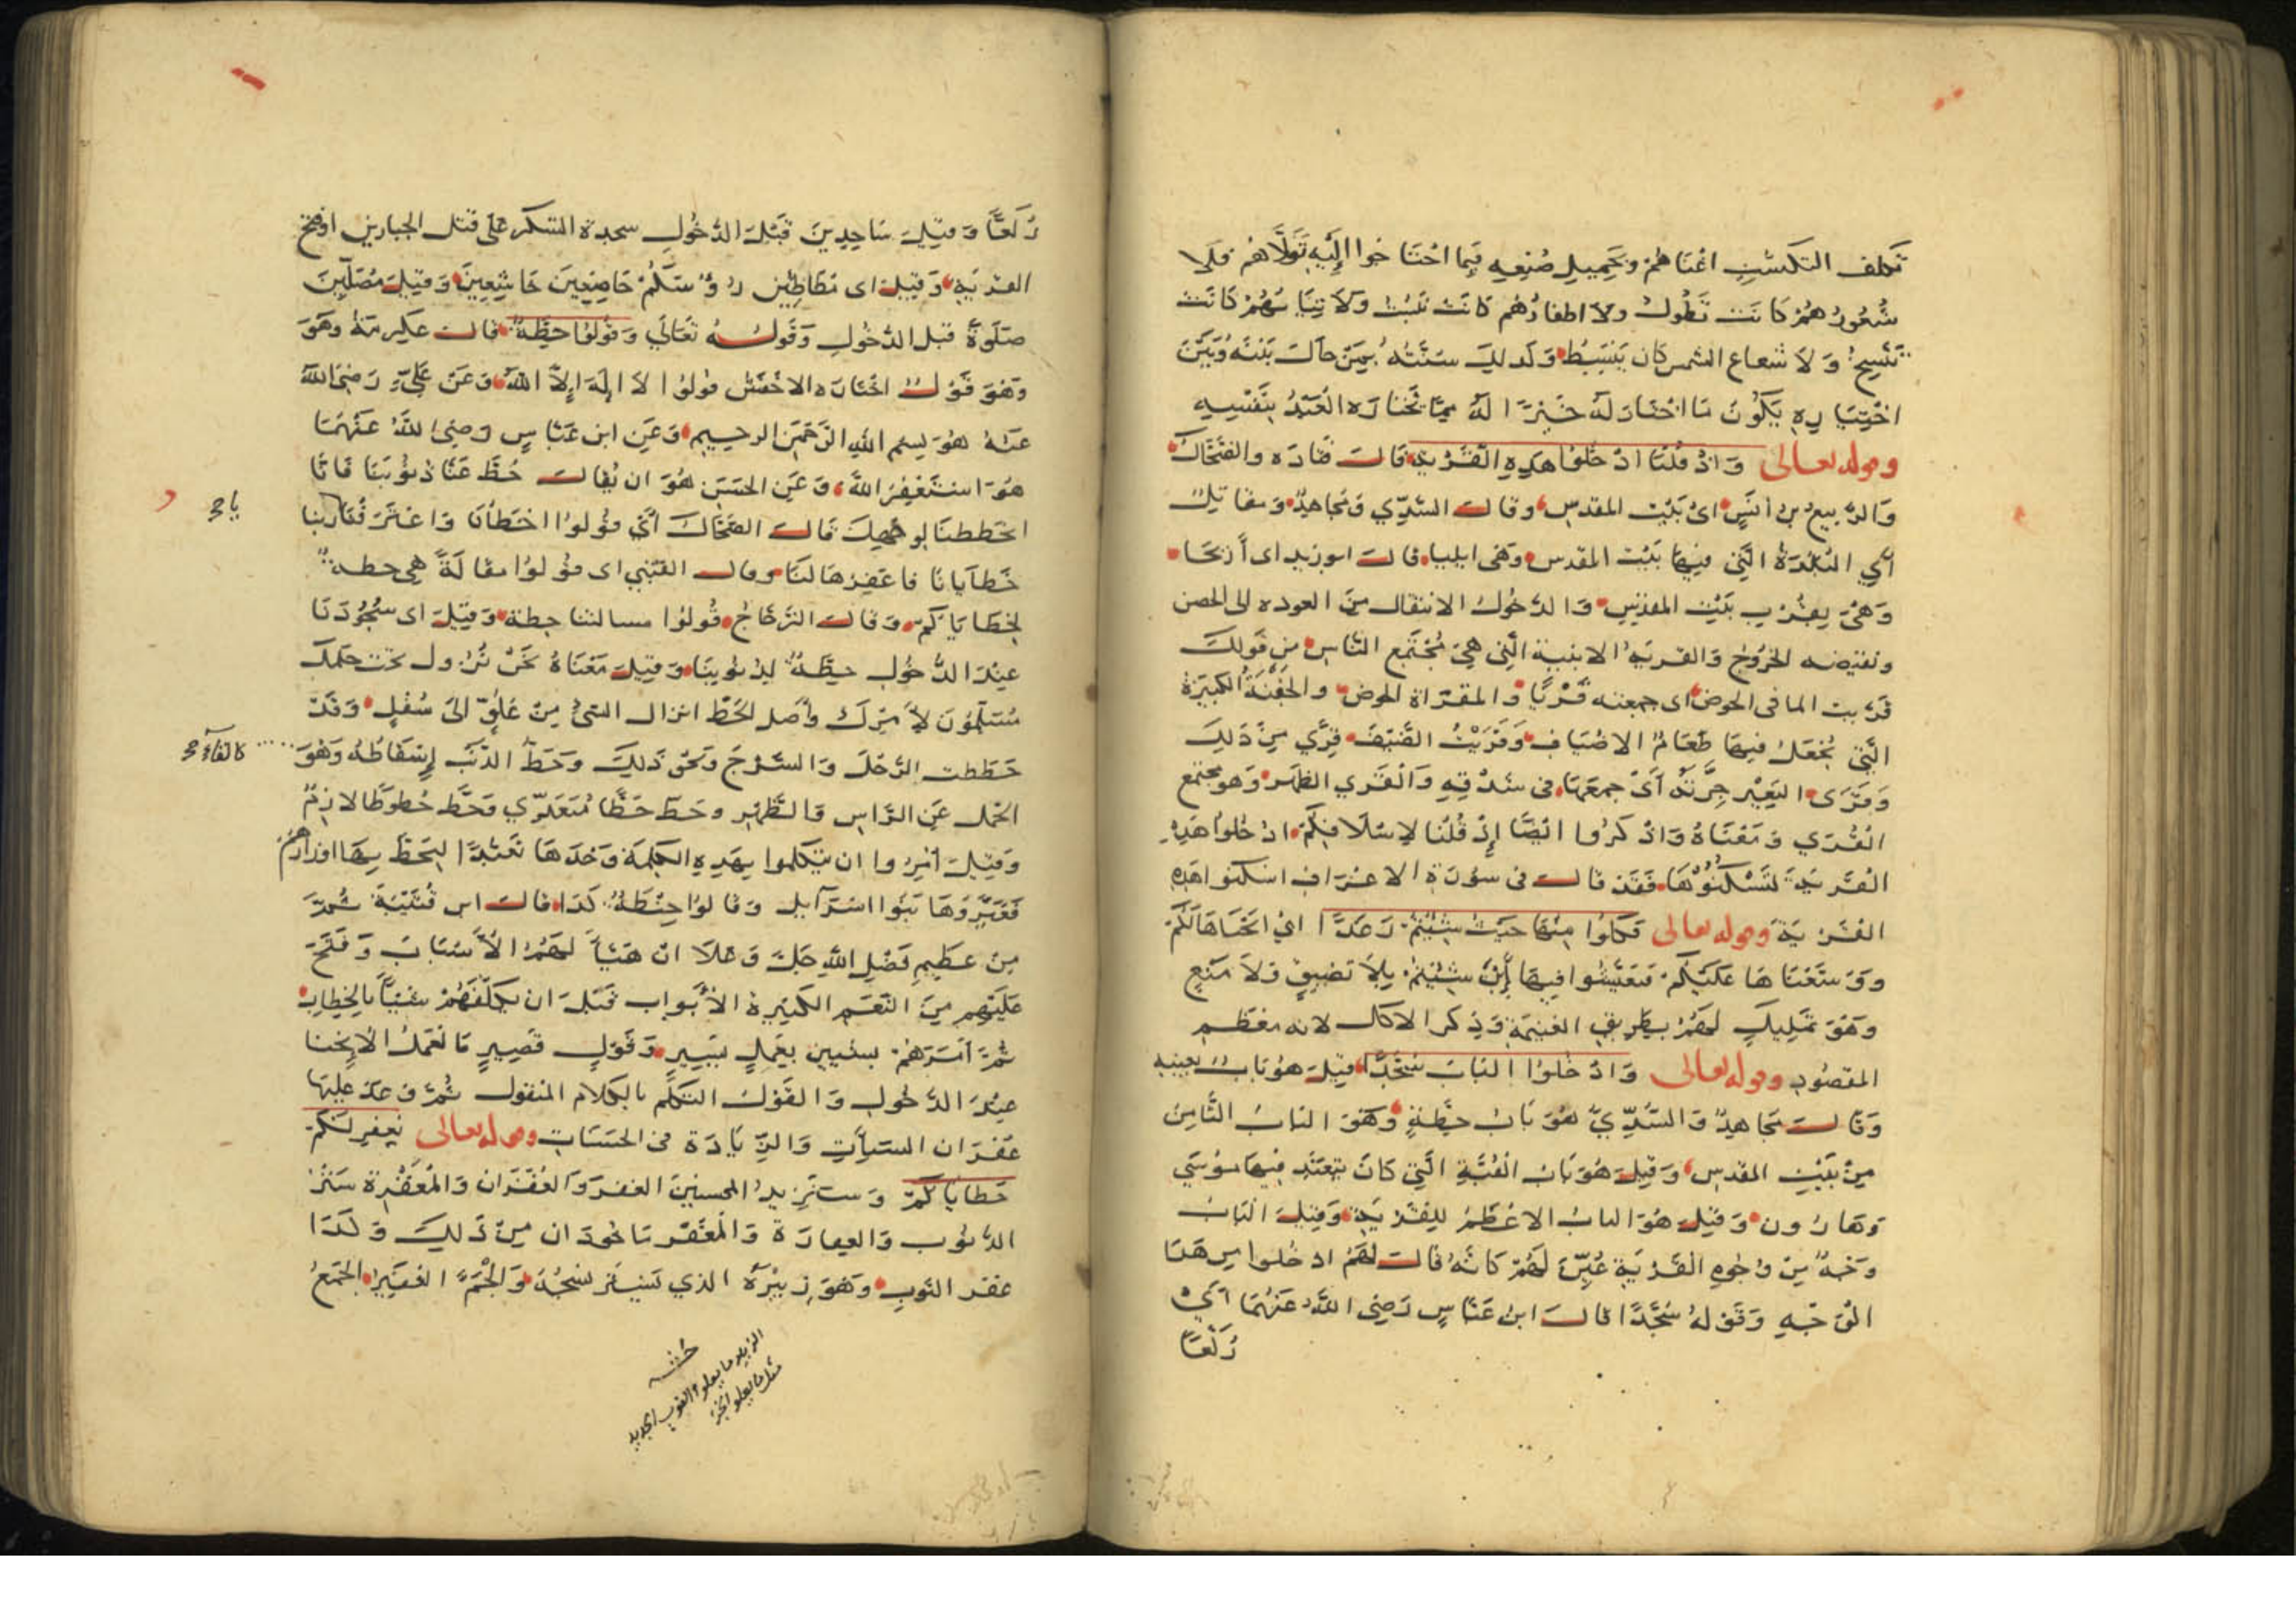 تكلف التكسب اغناهم وبجميل صنعه فيما احتاجوا إليه تولاهم فلا
شعورهم كانت تطول ولا اظفارهم كانت تنبت ولا ثيابهم كانت
تتسخ ولا شعاع الشمس كان ينبسط وكذلك سنته بمن حال بينه وبين
اختياره يكون ما اختار له خيرا له مما يختاره العبد بنفسه
وقوله تعالى واذ قلنا ادخلوا هذه القرية قال قتاده والضحاك
والربيع بن أنس اى بيت المقدس وقال السدي ومجاهد ومقاتل
أي البلدة التي فيها بيت المقدس وهى ايليا قال ابو زيد اى أريحا
وهي بقرب بيت المقدس والدخول الانتقال من العوده الى الحصن
ونقيضه الخروج والقرية الابنية التي هي مجتمع الناس من قولك
قريت الما فى الحوض اى جمعته قريا والمقراة الحوض والجفنة الكبيرة
التي يجعل فيها طعام الاضياف وقريت الضيف قرى من ذلك
وقرى البعير جرته أى جمعها فى شدقه والقري الظهر وهو مجتمع
القرى ومعناه واذكروا ايضا إذ قلنا لاسلافكم ادخلوا هذه
القرية لتسكنوها فقد قال فى سورة الاعراف اسكنوا هذه
القرية وقوله تعالى فكلوا منها حيث شئتم رغدا اي ابحناها لكم
ووسعناها عليكم فتعيشوا فيها أين شئتم بلا تضييق ولا منع
وهو تمليك لهم بطريق الغنيمة وذكر الاكل لانه معظم
المقصود وقوله تعالى وادخلوا الباب سجدا قيل هو باب بعينه
وقال مجاهد والسدي هو باب حطة وهو الباب الثامن
من بيت المقدس وقيل هو باب القبة التي كان يتعبد فيها موسى
وهارون وقيل هو الباب الاعظم للقرية وقيل الباب
وجه من وجوه القرية عين لهم كانه قال لهم ادخلوا من هذا
الوجه وقوله سجدا قال ابن عباس رضي الله عنهما أي
ركعا
ركعا وقيل ساجدين قبل الدخول سجدة الشكر على قتل الجبارين اوفتح
القرية وقيل اى مطاطئين رؤسكم خاضعين خاشعين وقيل مصلين
صلوة قبل الدخول وقوله تعالى وقولوا حطة قال عكرمة وهو
وهو قول اختاره الاخفش قولوا لا اله إلا الله وعن علي رضى الله
عنه هو بسم الله الرحمن الرحيم وعن ابن عباس رضى الله عنهما
هو استغفر الله وعن الحسن هو ان يقال حط عنا ذنوبنا فانا
انحططنا لوجهك قال الضحاك أي قولوا اخطأنا واعترفنا ربنا
يا
خطايانا فاغفرها لنا وقال القتبي اى قولوا مقالة هي حطة
لخطاياكم وقال الزجاج قولوا مسالتنا حطة وقيل اى سجودنا
عند الدخول حطة لذنوبنا وقيل معناه نحن نزول تحت حكمك
مستلمون لأمرك وأصل الحط انزال الشئ من علو الى سفل وقد
حططت الرحل والسرج ونحو ذلك وحط الذنب إسقاطه وهو
كالقاء
الحمل عن الراس والظهر وحط حطا متعدي وحط حطوطا لازم
وقيل أمروا ان يتكلموا بهذه الكلمة وحدها تعبدا ليحط بها اوزارهم
فغيروها بنوا اسرآيل وقالوا حنطة كذا قال ابن قتيبة ثم
من عظيم فضل الله جل وعلا ان هيأ لهم الأسباب وفتح
عليهم من النعم الكثيرة الأبواب قبل ان يكلفهم شيئا بالخطاب
ثم أمرهم بشيين بعمل يسير وقول قصير فالعمل الانحنا
عند الدخول والقول التكلم بالكلام المنقول ثم وعد عليها
غفران السيأت والزيادة فى الحسنات وقوله تعالى نغفر لكم
خطاياكم وسنزيد المحسنين الغفر والغفران والمغفرة ستر
الذنوب والغفارة والمغفر ماخوذان من ذلك وكذا
غفر الثوب وهو زئبره الذي يستر نسجه والجم الغفير الجمع
الزئبر ما يعلو الثوب الجديد
مثل ما يعلو الخز